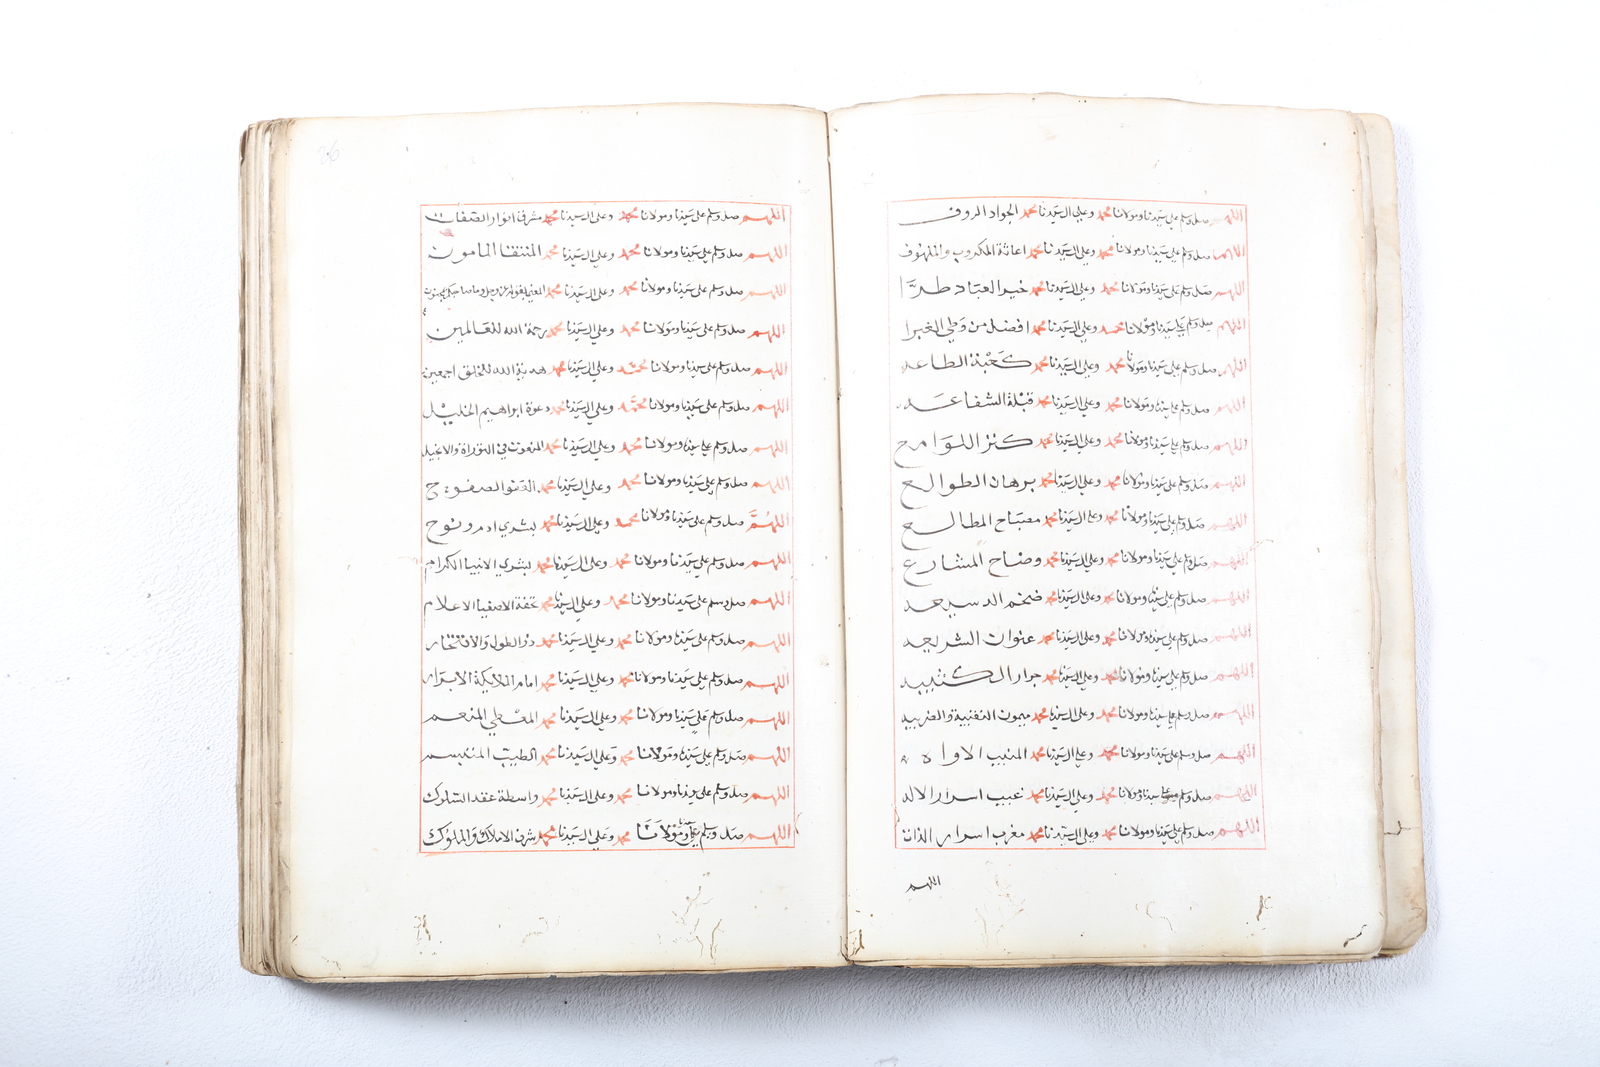 اللهم صل وسلم على سيدنا ومولانا محمد وعلى ال سيدنا محمد الجواد الروف
اللهم صل وسلم على سيدنا ومولانا محمد وعلى ال سيدنا محمد اغاثة المكروب والملهوف
اللهم صل وسلم على سيدنا ومولانا محمد وعلى ال سيدنا محمد خير العباد طرّا
اللهم صل وسلم على سيدنا ومولانا محمد وعلى ال سيدنا محمد افضل من وطي الغبرا
اللهم صل وسلم على سيدنا ومولانا محمد وعلى ال سيدنا محمد كعبة الطاعه
اللهم صل وسلم على سيدنا ومولانا محمد وعلى ال سيدنا محمد قبلة الشفاعه
اللهم صل وسلم على سيدنا ومولانا محمد وعلى ال سيدنا محمد كنز اللوامح
اللهم صل وسلم على سيدنا ومولانا محمد وعلى ال سيدنا محمد برهان الطوالع
اللهم صل وسلم على سيدنا ومولانا محمد وعلى ال سيدنا محمد مصباح المطالع
اللهم صل وسلم على سيدنا ومولانا محمد وعلى ال سيدنا محمد وضاح المشارع
اللهم صل وسلم على سيدنا ومولانا محمد وعلى ال سيدنا محمد ضخم الدسيعه
اللهم صل وسلم على سيدنا ومولانا محمد وعلى ال سيدنا محمد عنوان الشريعه
اللهم صل وسلم على سيدنا ومولانا محمد وعلى ال سيدنا محمد جرار الكتيبه
اللهم صل وسلم على سيدنا ومولانا محمد وعلى ال سيدنا محمد ميمون النقيبة والضريبه
اللهم صل وسلم على سيدنا ومولانا محمد وعلى ال سيدنا محمد المنيب الاواه
اللهم صل وسلم على سيدنا ومولانا محمد وعلى ال سيدنا محمد غيب اسرار الاله
اللهم صل وسلم على سيدنا ومولانا محمد وعلى ال سيدنا محمد مغرب اسرار الذات
اللهم
اللهم صل وسلم على سيدنا ومولانا محمد وعلى ال سيدنا محمد مشرق انوار الصفات
اللهم صل وسلم على سيدنا ومولانا محمد وعلى ال سيدنا محمد المنتقا المامون
اللهم صل وسلم على سيدنا ومولانا محمد وعلى ال سيدنا محمد وما صاحبكم بمجنون
اللهم صل وسلم على سيدنا ومولانا محمد وعلى ال سيدنا محمد رحمة الله للعالمين
اللهم صل وسلم على سيدنا ومولانا محمد وعلى ال سيدنا محمد هدية الله للخلق اجمعين
اللهم صل وسلم على سيدنا ومولانا محمد وعلى ال سيدنا محمد دعوة ابراهيم الخليل
اللهم صل وسلم على سيدنا ومولانا محمد وعلى ال سيدنا محمد المنعوت في التوراة والانجيل
اللهم صل وسلم على سيدنا ومولانا محمد وعلى ال سيدنا محمد العفو الصفوح
اللهم صل وسلم على سيدنا ومولانا محمد وعلى ال سيدنا محمد بشرى ادم ونوح
اللهم صل وسلم على سيدنا ومولانا محمد وعلى ال سيدنا محمد بشرى الانبيا الكرام
اللهم صل وسلم على سيدنا ومولانا محمد وعلى ال سيدنا محمد تحفة الاصفيا الاعلام
اللهم صل وسلم على سيدنا ومولانا محمد وعلى ال سيدنا محمد ذو الطول والافتخار
اللهم صل وسلم على سيدنا ومولانا محمد وعلى ال سيدنا محمد امام الملايكة الابرار
اللهم صل وسلم على سيدنا ومولانا محمد وعلى ال سيدنا محمد المعطي المنعم
اللهم صل وسلم على سيدنا ومولانا محمد وعلى ال سيدنا محمد الطيب المتبسم
اللهم صل وسلم على سيدنا ومولانا محمد وعلى ال سيدنا محمد واسطة عقد السلوك
اللهم صل وسلم على سيدنا ومولانا محمد وعلى ال سيدنا محمد شرف الاملاك والملوك